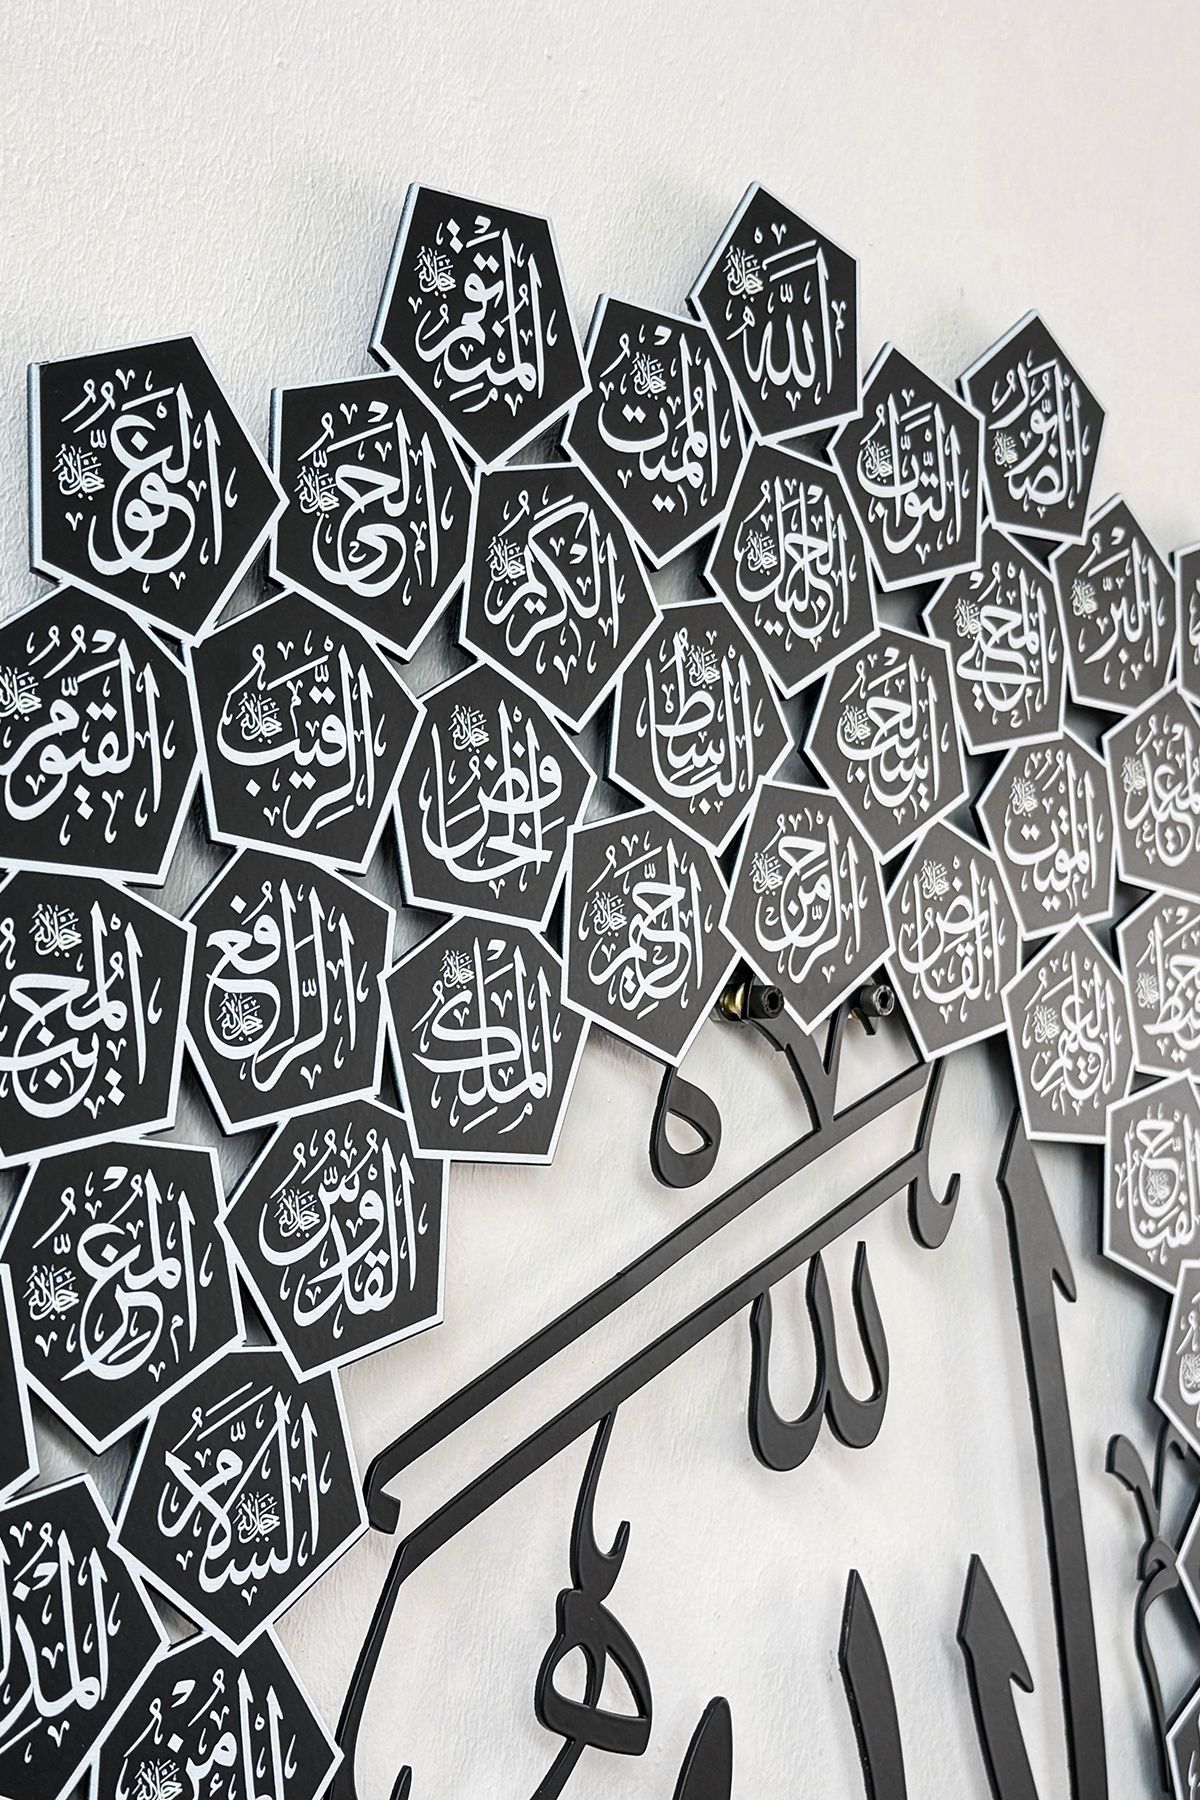 المنتقم جل جلاله
الله جل جلاله
الغفور جل جلاله
الحي جل جلاله
المميت جل جلاله
التواب جل جلاله
الضار
الكريم جل جلاله
الجليل جل جلاله
المحيي جل جلاله
البر جل جلاله
القيوم جل جلاله
الرقيب جل جلاله
الحافظ جل جلاله
الباسط جل جلاله
الحسيب جل جلاله
المقيت جل جلاله
المعيد جل جلاله
الرافع جل جلاله
الملك جل جلاله
الرحيم جل جلاله
الرحمن جل جلاله
القابض جل جلاله
العليم جل جلاله
الحفيظ جل جلاله
المعز جل جلاله
القدوس جل جلاله
الفتاح جل جلاله
السلام جل جلاله
المذل
المؤمن جل جلاله